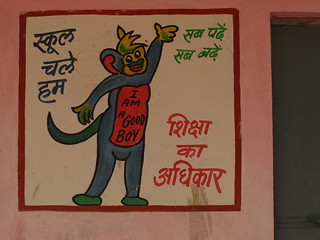 स्कूल
चले
हम
सब पढ़ें
सब बढ़ें
I
AM
A
GOOD
BOY
शिक्षा
का
अधिकार